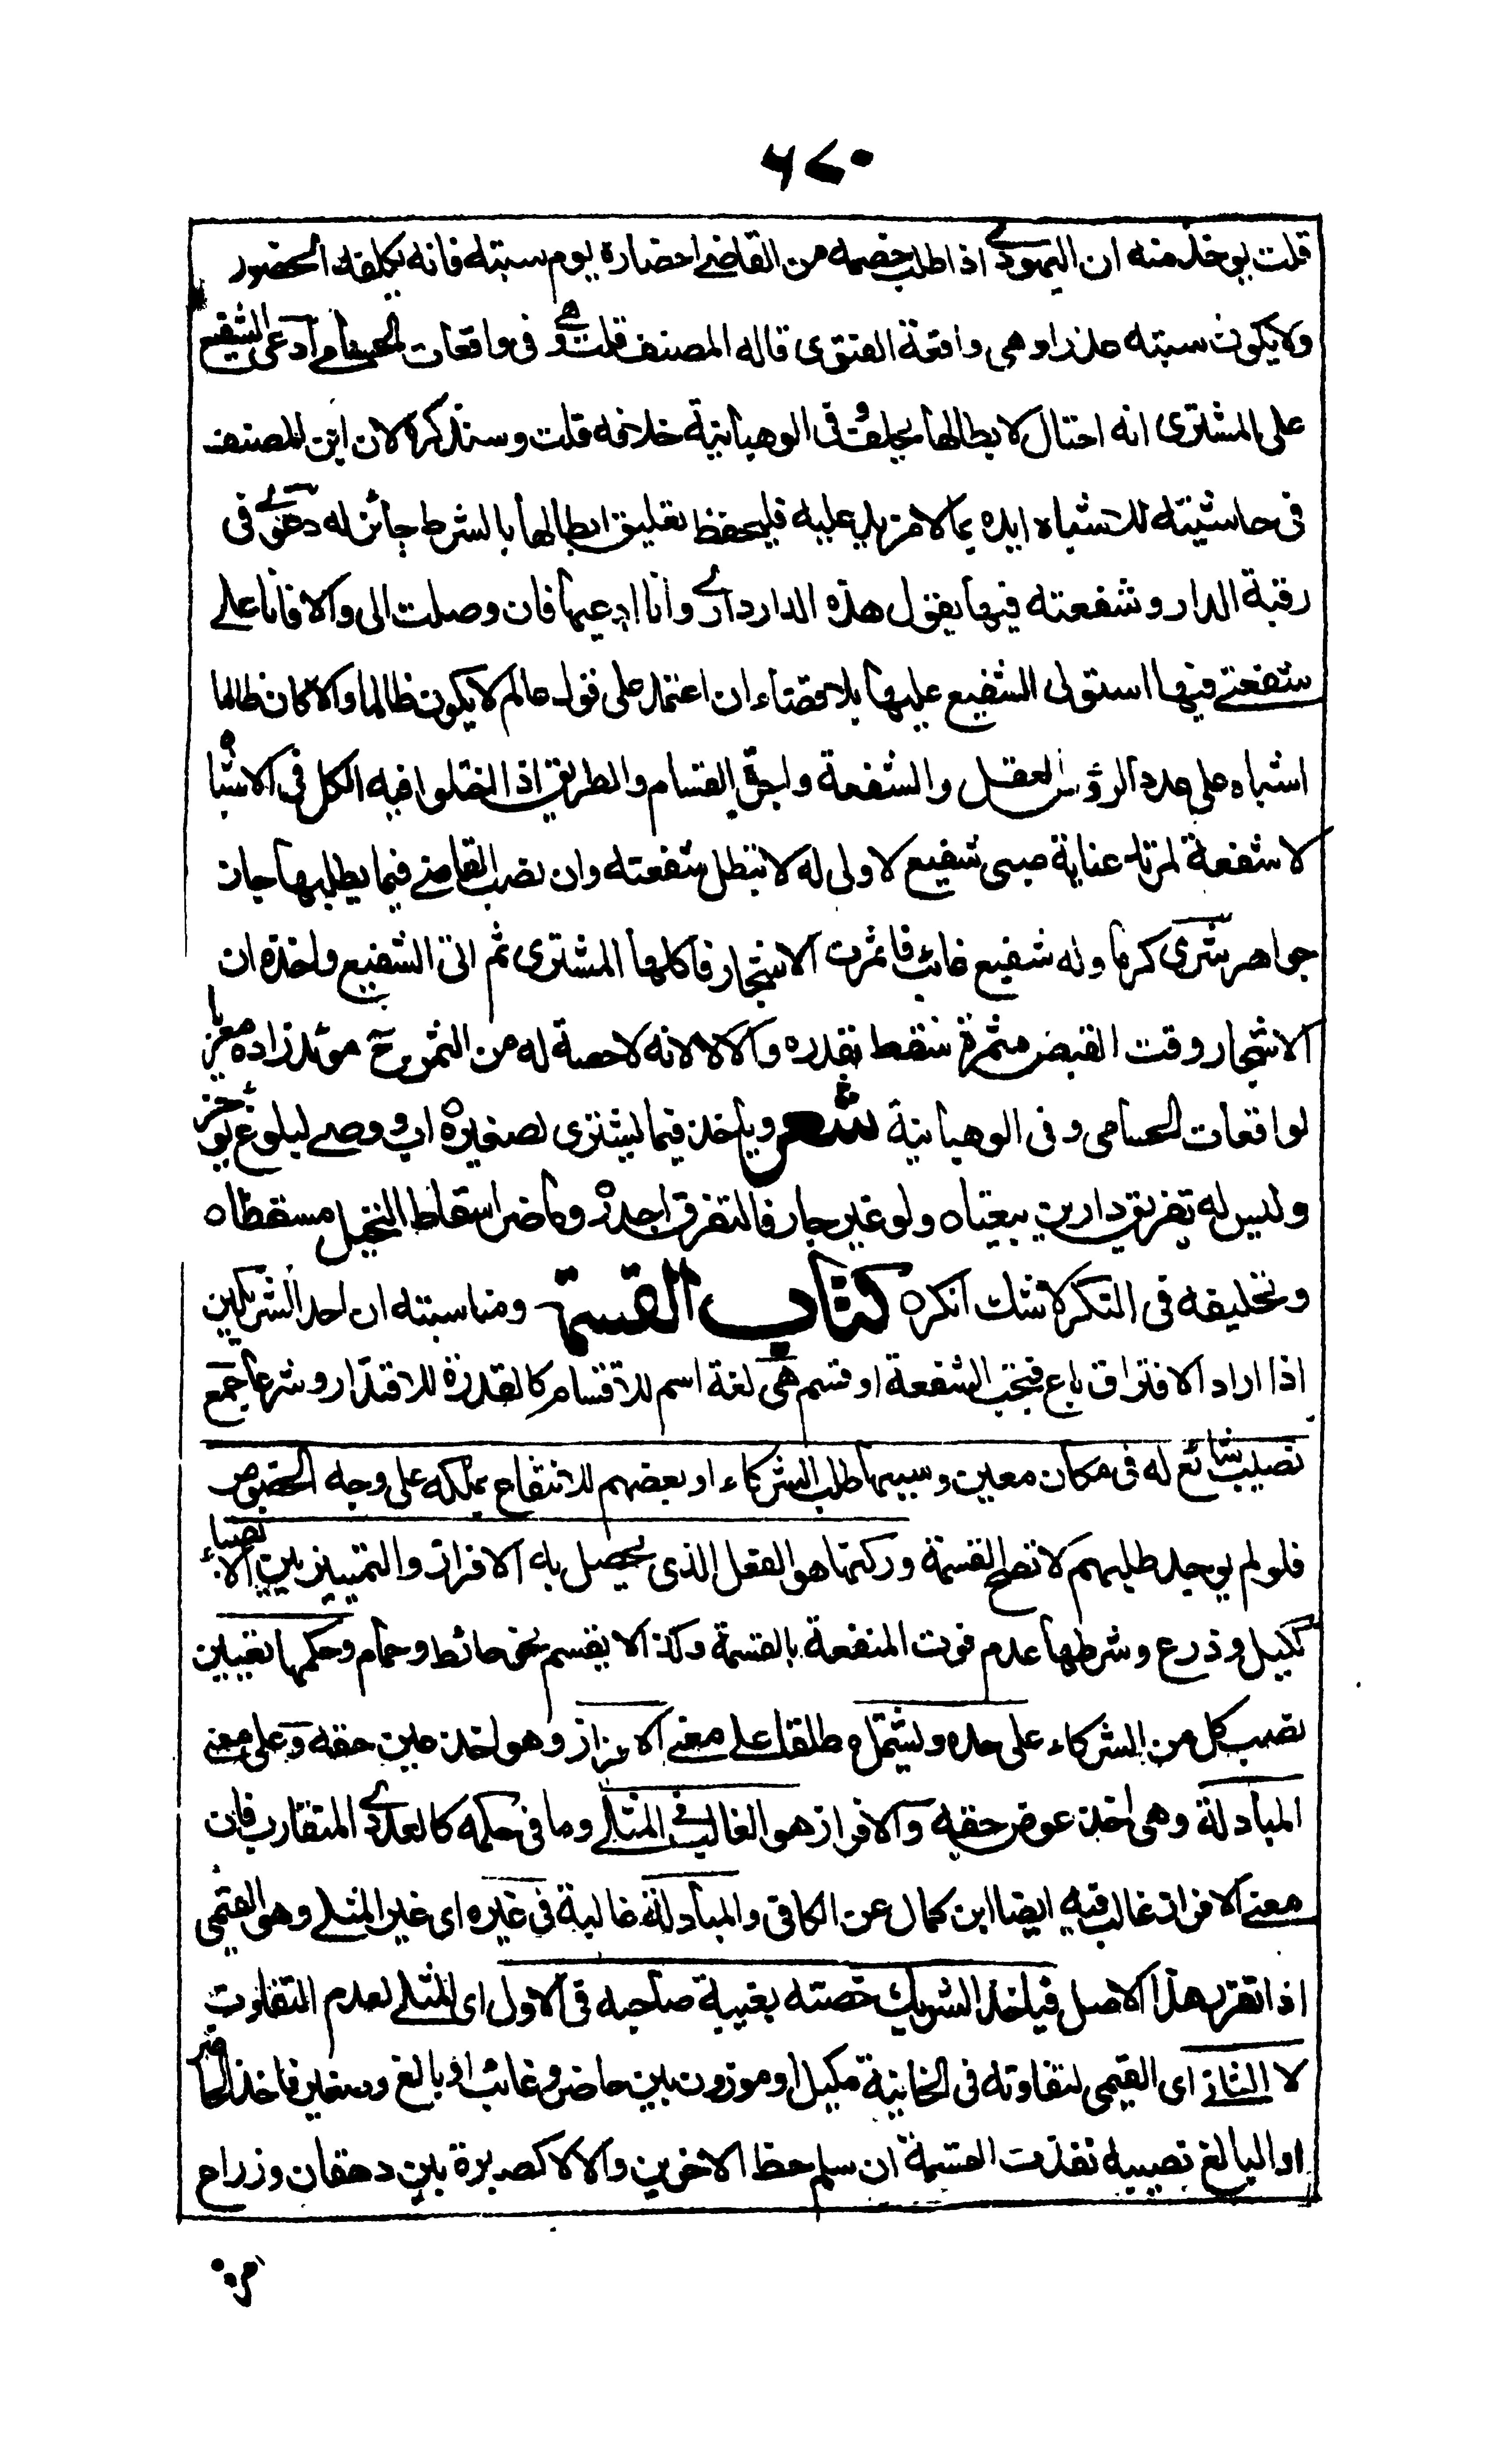 ٦٧٠
قلت يوخذ منه ان اليهودى اذا طلب خصمه من القاضى احضاره يوم سبته فانه يكلفه الحضور
ولا يكون سبته عذرا وهى واقعة الفتوى قاله المصنف قلت وهى فى واقعات الحسامى ادعى الشفيع
على المشترى انه احتال لابطالها يحلف وفى الوهبانية خلافه قلت وسنذكره لان ابن المصنف
فى حاشيته للاشباه ايده بما لا مزيد عليه فليحفظ تعليق ابطالها بالشرط جائز له دعوى فى
رقبة الدار وشفعته فيها يقول هذه الدار دارى وانا ادعيها فان وصلت الى والا فانا على
شفعتى فيها استولى الشفيع عليها بلا قضاء ان اعتمد على قول عالم لا يكون ظالما والا كان ظالما
اشباه على عدد الرؤس العقل والشفعة واجرة القسام والطريق اذا اختلوا فيه الكل فى الاشباه
لا شفعة لمرتد عناية صبى شفيع لا ولى له لا تبطل شفعته وان نصب القاضى فيما يطلبها جاز
جواهر شرى كرما وله شفيع غائب فاثمرت الاشجار فاكلها المشترى ثم اتى الشفيع واخذه ان
الاشجار وقت القبض مثمرة سقط بقدره والا لا لانه لا حصة له من الثمن ح مؤيد زاده معزيا
لواقعات الحسامى وفى الوهبانية شعر وياخذ فيما يشترى لصغيره اب ووصى لبلوغ يوخر
وليس له تفريق دارين بيعتاه ولو غير جار فالتفرق اجدر وماضر اسقاط التخيل مسقطاه
وتحليفه فى النكر لا شك انكره كتاب القسمة ومناسبته ان احد الشريكين
اذا اراد الافتراق باع فتجب الشفعة او قسم هى لغة اسم للاقتسام كالقدرة للاقتدار وشرعا جمع
نصيب شائع له فى مكان معين وسببها طلب الشركاء او بعضهم للانتفاع بملكه على وجه الخصوص
فلو لم يوجد طلبهم لا تصح القسمة وركنها هو الفعل الذى يحصل به الافراز والتمييز بين الانصباء
ككيل وذرع وشرطها عدم فوت المنفعة بالقسمة ولذا لا يقسم نحو حائط وحمام وحكمها تعيين
نصيب كل من الشركاء على حده وتشتمل مطلقا على معنى الافراز وهو اخذ عين حقه وعلى معنى
المبادلة وهى اخذ عوض حقه والافراز هو الغالب فى المثلى وما فى حكمه كالعددى المتقارب فان
معنى الافراز غالب فيه ايضا ابن كمال عن الكافى والمبادلة غالبة فى غيره اى غير المثلى وهو القيمى
اذا تقرر هذا الاصل فياخذ الشريك حصته بغيبة صاحبه فى الاول اى المثلى لعدم التفاوت
لا الثانى اى القيمى لتفاوته فى الخانية مكيل او موزون بين حاضر وغائب او بالغ وصغير فاخذ الحاضر
او البالغ نصيبه نفذت القسمة ان سلم حظ الاخرين والا لا كصبرة بين دهقان وزراع